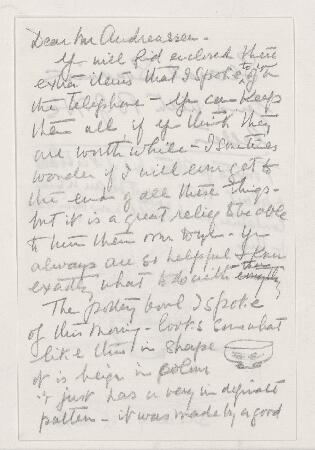 Dear Mr Andreassen -
You will find enclosed three
extra items that I spoke to you of on
the telephone - You can keep
them all if you think they
are worth while - I sometimes
wonder if I will ever get to
the end of all these things -
but it is a great relief to be able
to turn them over to you - You
always are so helpful & know
exactly what to do with
The pottery bowl I spoke
of this morning - looks somewhat
like this in shape
it is beige in colour
it just has a very indefinite
pattern - it was made by a good